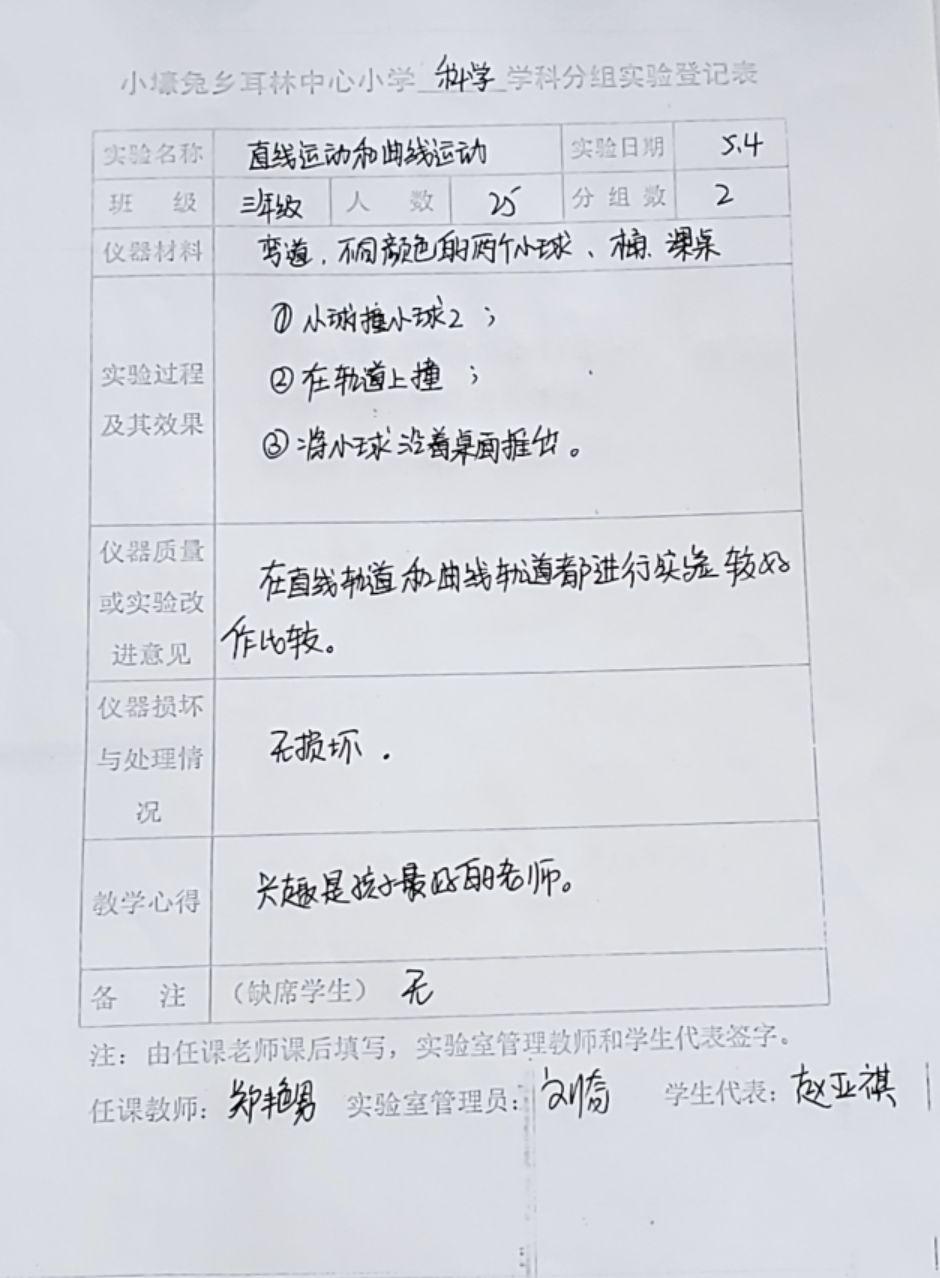 小壕兔乡耳林中心小学 科学 学科分组实验登记表
实验名称 直线运动和曲线运动 实验日期 5.4
班 级 三年级 人 数 25 分组数 2
仪器材料 弯道、不同颜色的两个小球、桶、课桌
实验过程
及其效果
① 小球撞小球2；
② 在轨道上撞；
③ 将小球沿着桌面推出。
仪器质量
或实验改
进意见
在直线轨道和曲线轨道都进行实验较好
作比较。
仪器损坏
与处理情
况
无损坏.
教学心得 兴趣是孩子最好的老师。
备 注 （缺席学生） 无
注：由任课老师课后填写，实验室管理教师和学生代表签字。
任课教师：郑艳男 实验室管理员： 学生代表：赵亚祺